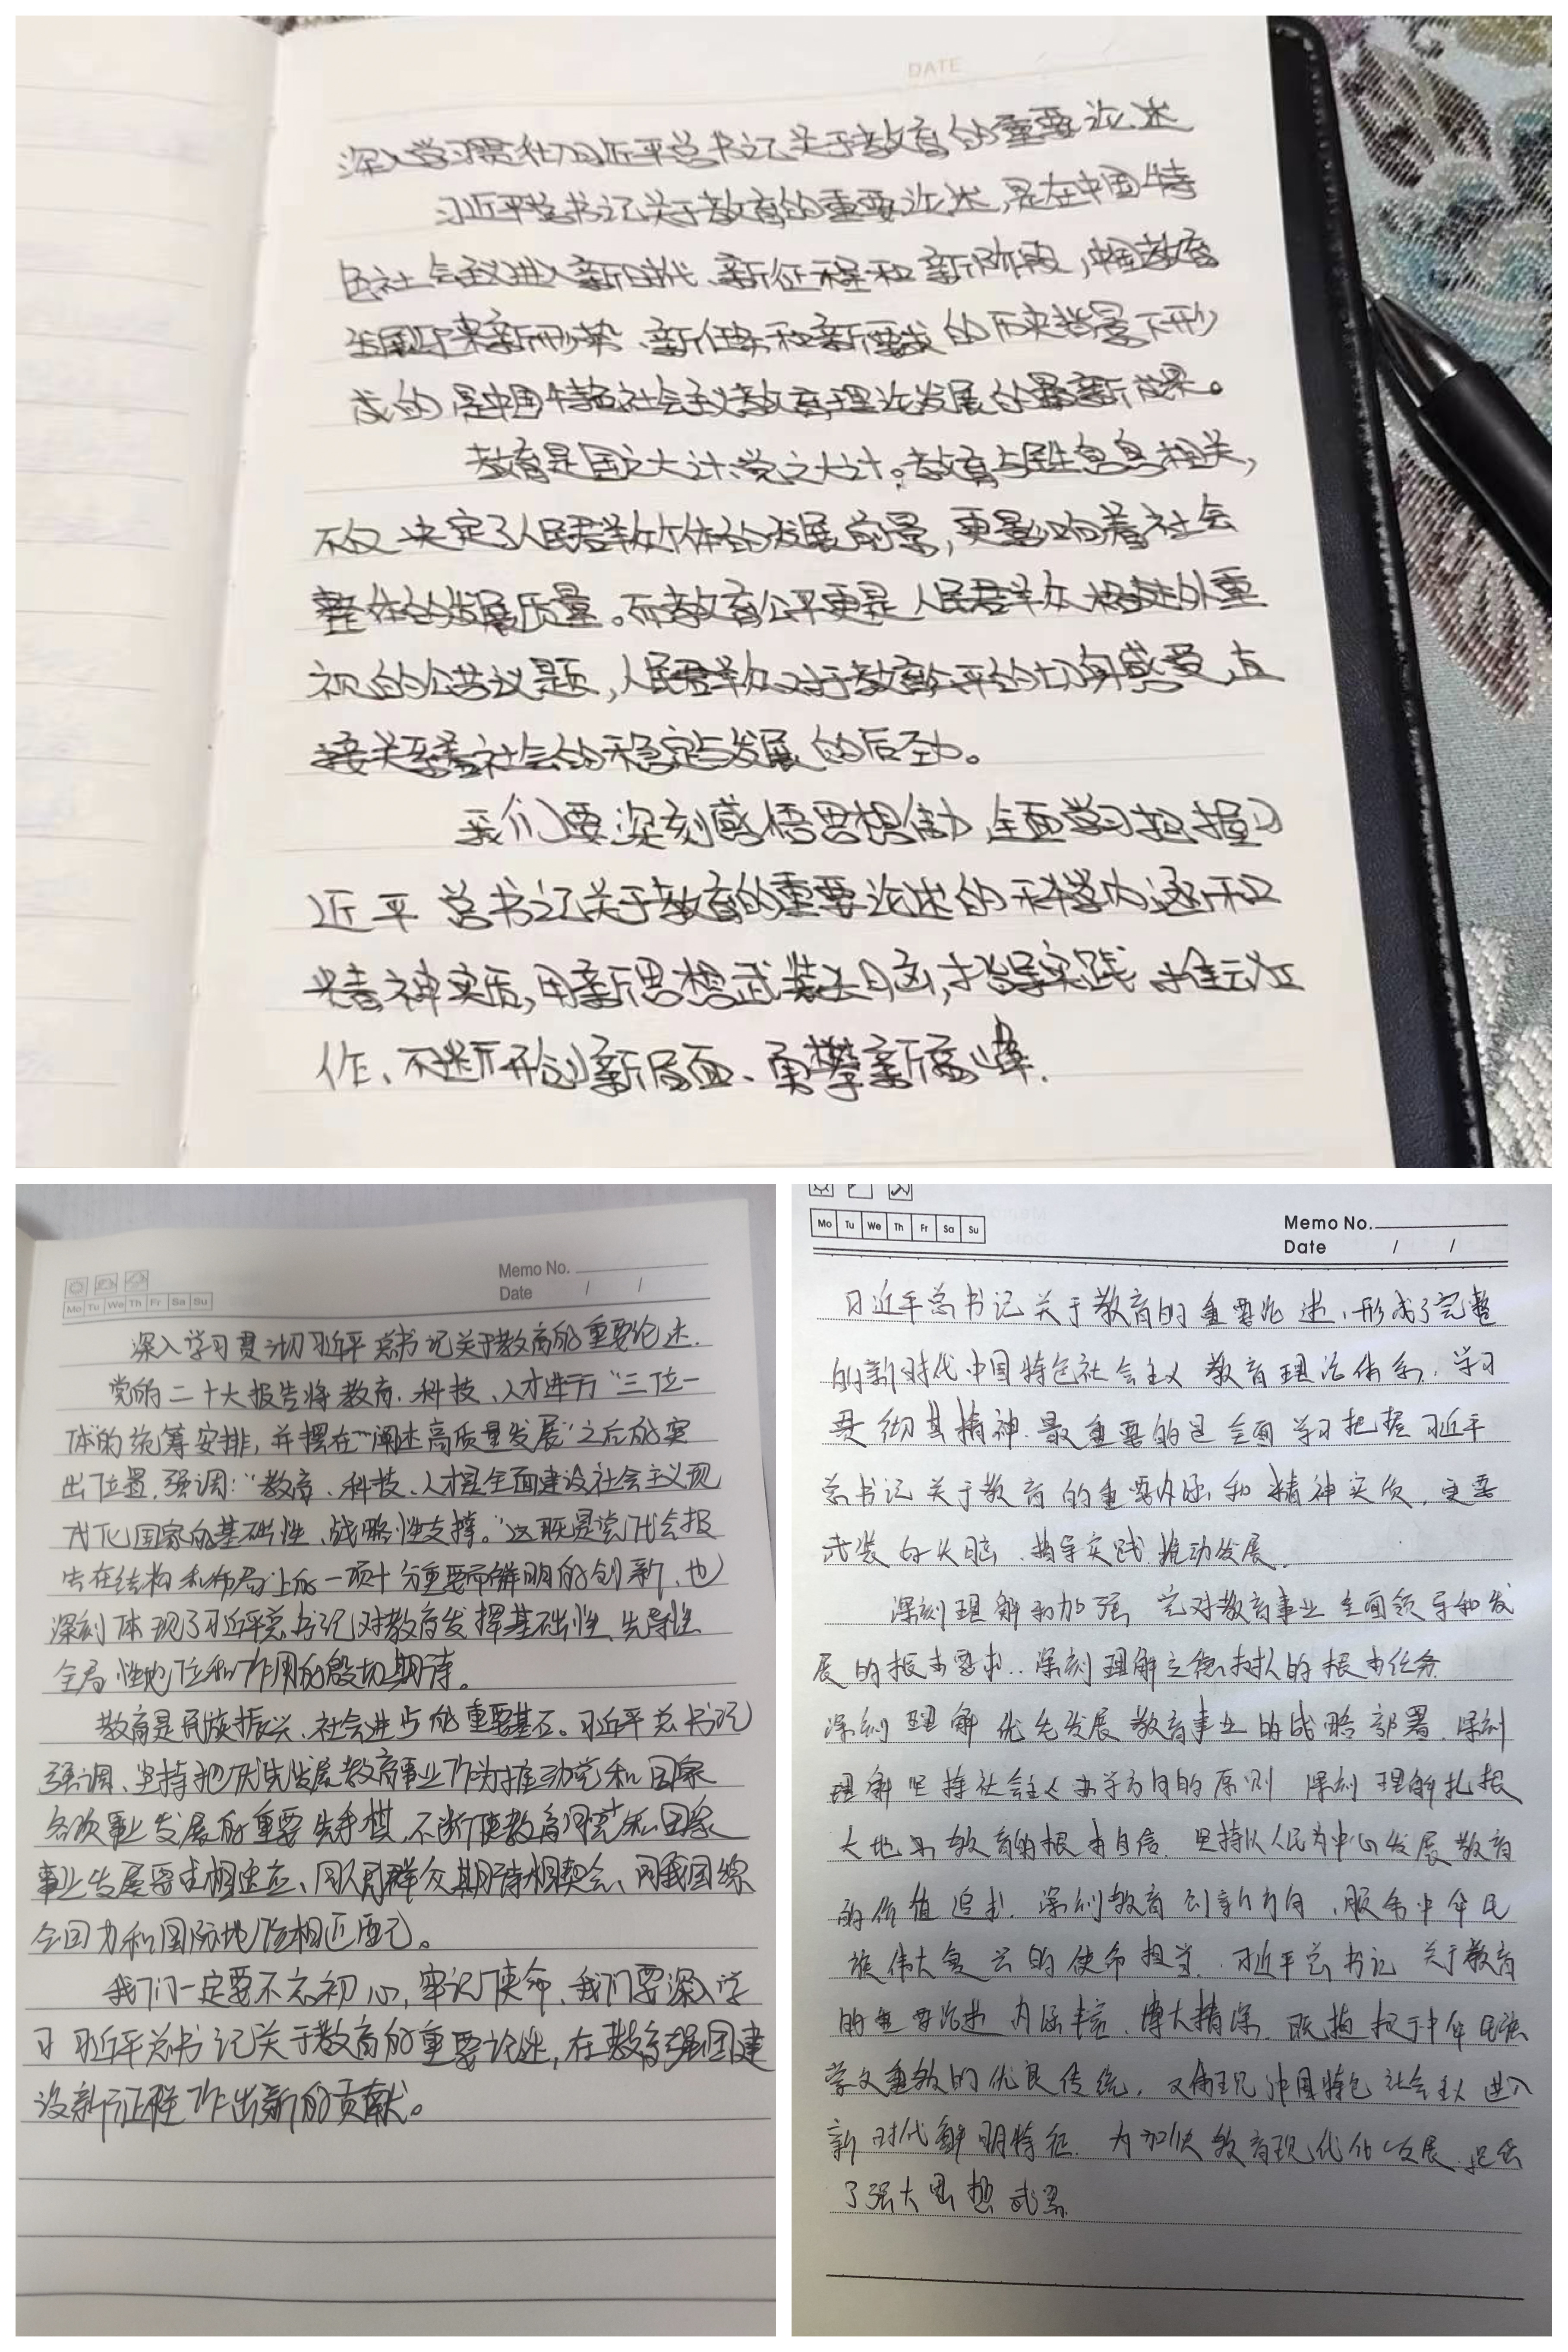 DATE
深入学习贯彻习近平总书记关于教育的重要论述
习近平总书记关于教育的重要论述,是在中国特
色社会主义进入新时代、新征程和新阶段,中国教育
新形势、新任务和新要求的历史背景下形
成的,是中国特色社会主义教育理论发展的最新成果。
教育是国之大计、党之大计。教育与民生息息相关,
不仅决定了人民群众个体的发展前景,更影响着社会
整体的发展质量。而教育公平更是人民群众格外重
视的公共议题,人民群众对于教育公平的切身感受,直
接关系着社会的稳定与发展的后劲。
我们要深刻感悟思想伟力,全面学习把握习
近平总书记关于教育的重要论述的科学内涵和
精神实质,用新思想武装头脑,指导实践,推动工
作、不断开创新局面、勇攀新高峰.
Memo No.
Date / /
Mo Tu We Th Fr Sa Su
深入学习贯彻习近平总书记关于教育的重要论述.
党的二十大报告将教育、科技、人才进行“三位一
体”的统筹安排,并摆在“阐述高质量发展”之后的突
出位置,强调:“教育、科技、人才是全面建设社会主义现
代化国家的基础性、战略性支撑。”这既是党代会报
告在结构和布局上的一项十分重要而鲜明的创新,也
深刻体现了习近平总书记对教育发挥基础性、先导性、
全局性地位和作用的殷切期待。
教育是民族振兴、社会进步的重要基石。习近平总书记
强调、坚持把优先发展教育事业作为推动党和国家
各项事业发展的重要先手棋,不断使教育同党和国家
事业发展要求相适应、同人民群众期待相契合、同我国综
合国力和国际地位相匹配。
我们一定要不忘初心,牢记使命、我们要深入学
习习近平总书记关于教育的重要论述,在教育强国建
设新征程作出新的贡献。
Mo Tu We Th Fr Sa Su
Memo No.
Date / /
习近平总书记关于教育的重要论述,形成了完整
的新时代中国特色社会主义教育理论体系,学习
贯彻其精神.最重要的是全面学习把握习近平
总书记关于教育的重要内涵和精神实质,
武装的头脑、指导实践、推动发展.
深刻理解和加强党对教育事业全面领导和发
展的根本要求..深刻理解立德树人的根本任务
深刻理解优先发展教育事业的战略部署.深刻
理解坚持社会主义办学方向的原则 深刻理解扎根
大地办教育的根本自信.坚持以人民为中心发展教育
的价值追求.深刻教育创新方向、服务中华民
族伟大复兴的使命担当.习近平总书记关于教育
的重要论述内涵丰富、博大精深.既植根于中华民族
崇文重教的优良传统,又体现中国特色社会主义进入
新时代鲜明特征.为加快教育现代化发展提供
了强大思想武器